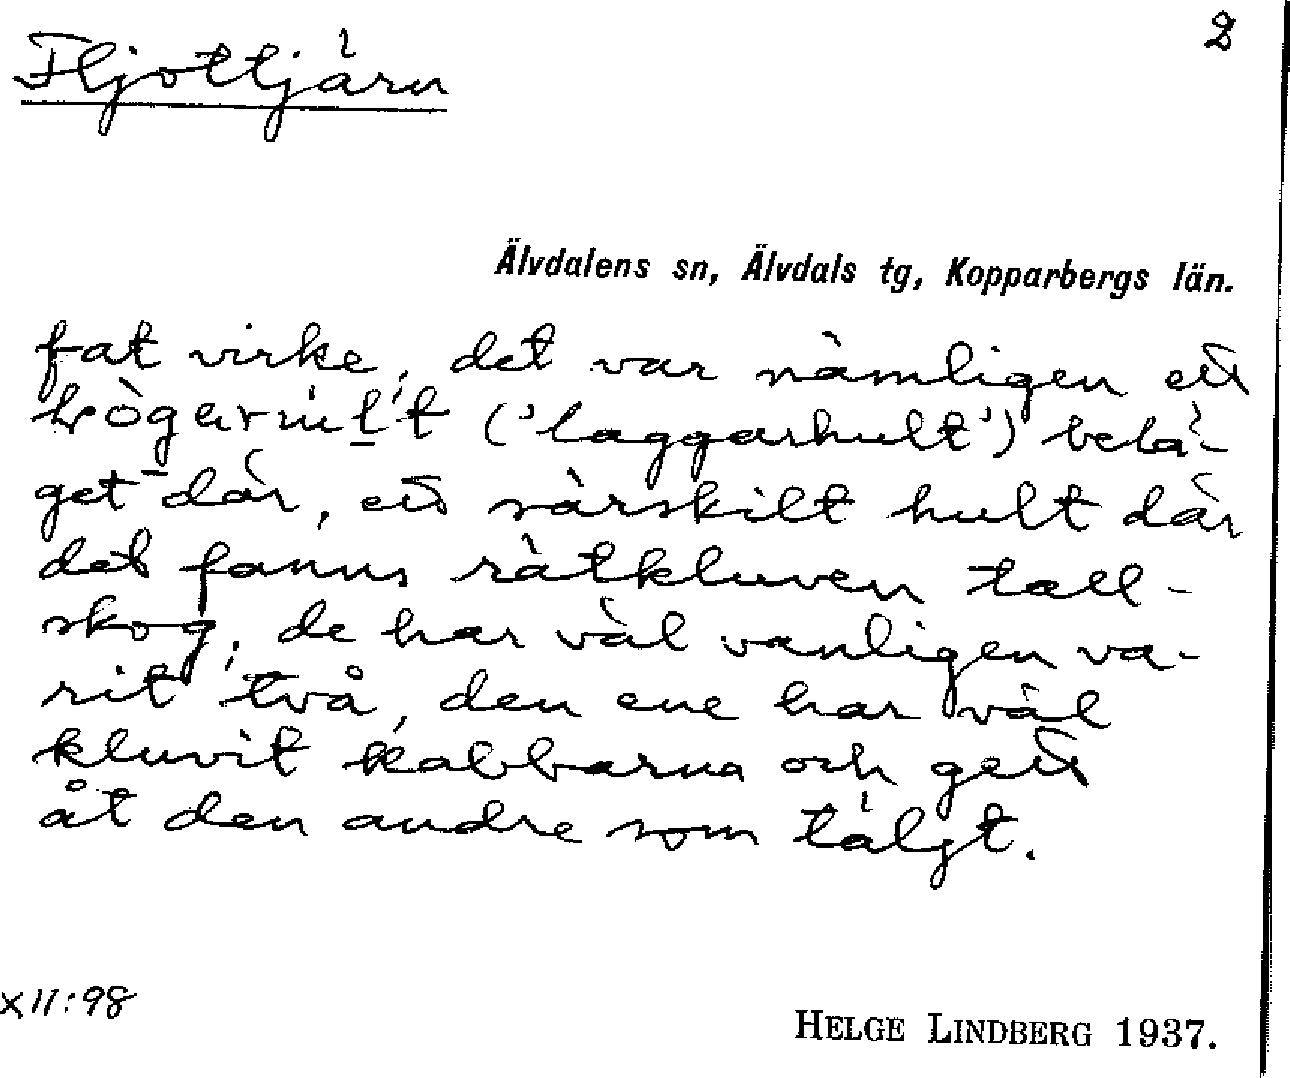 2
Fljottjärn
Älvdalens sn, Älvdals tg, Kopparbergs län.
fat virke, det var nämligen ett
('laggarhult') belä-
get där, ett särskilt hult där
det fanns rätkluven tall-
skog; de har väl vanligen va-
rit två, den ene har väl
kluvit kabbarna och gett
åt den andre som täljt.
XII:98
HELGE LINDBERG 1937.